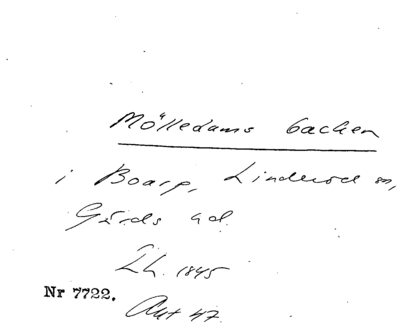 Mölledams backen
i Boarp, Linderöd sn,
Gärds hd.
Lh. 1845
Nr 7722.
Akt 47